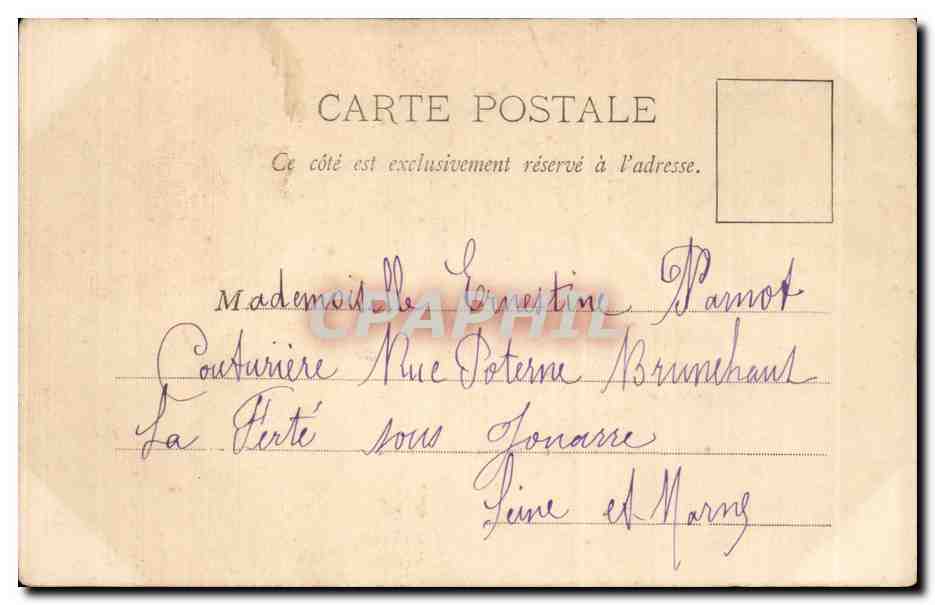 CARTE POSTALE
Ce côté est exclusivement réservé à l'adresse.
Mademoiselle Ernestine Parnot
CPAPHIL
Couturière Rue Poterne Brunehaut
La Ferté sous Jouarre
Seine et Marne